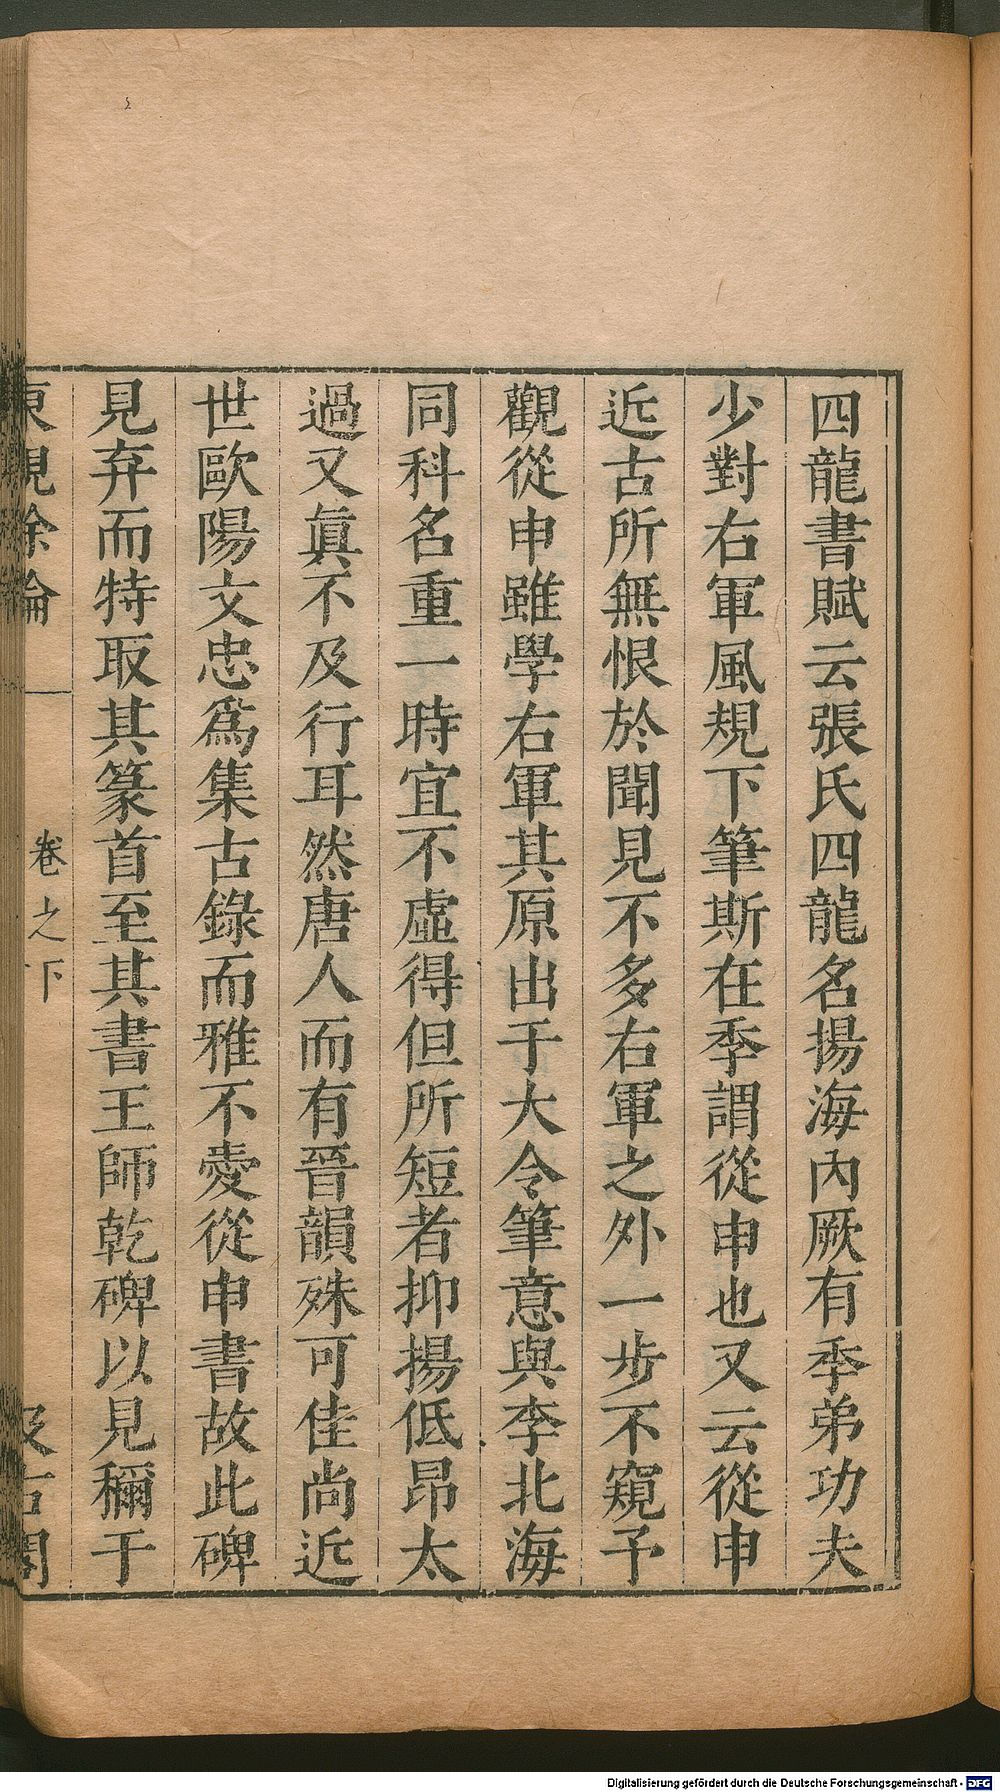 四龍書賦云張氏四龍名揚海內厥有季弟功夫
少對右軍風規下筆斯在季謂從申也又云從申
近古所無恨於聞見不多右軍之外一步不窺予
觀從申雖學右軍其原出于大令筆意與李北海
同科名重一時宜不虛得但所短者抑揚低昂太
過又眞不及行耳然唐人而有晉韻殊可佳尚近
世歐陽文忠爲集古錄而雅不愛從申書故此碑
見弃而特取其篆首至其書王師乾碑以見稱于
東觀餘論
卷之下
汲古閣
Digitalisierung gefördert durch die Deutsche Forschungsgemeinschaft - DFG